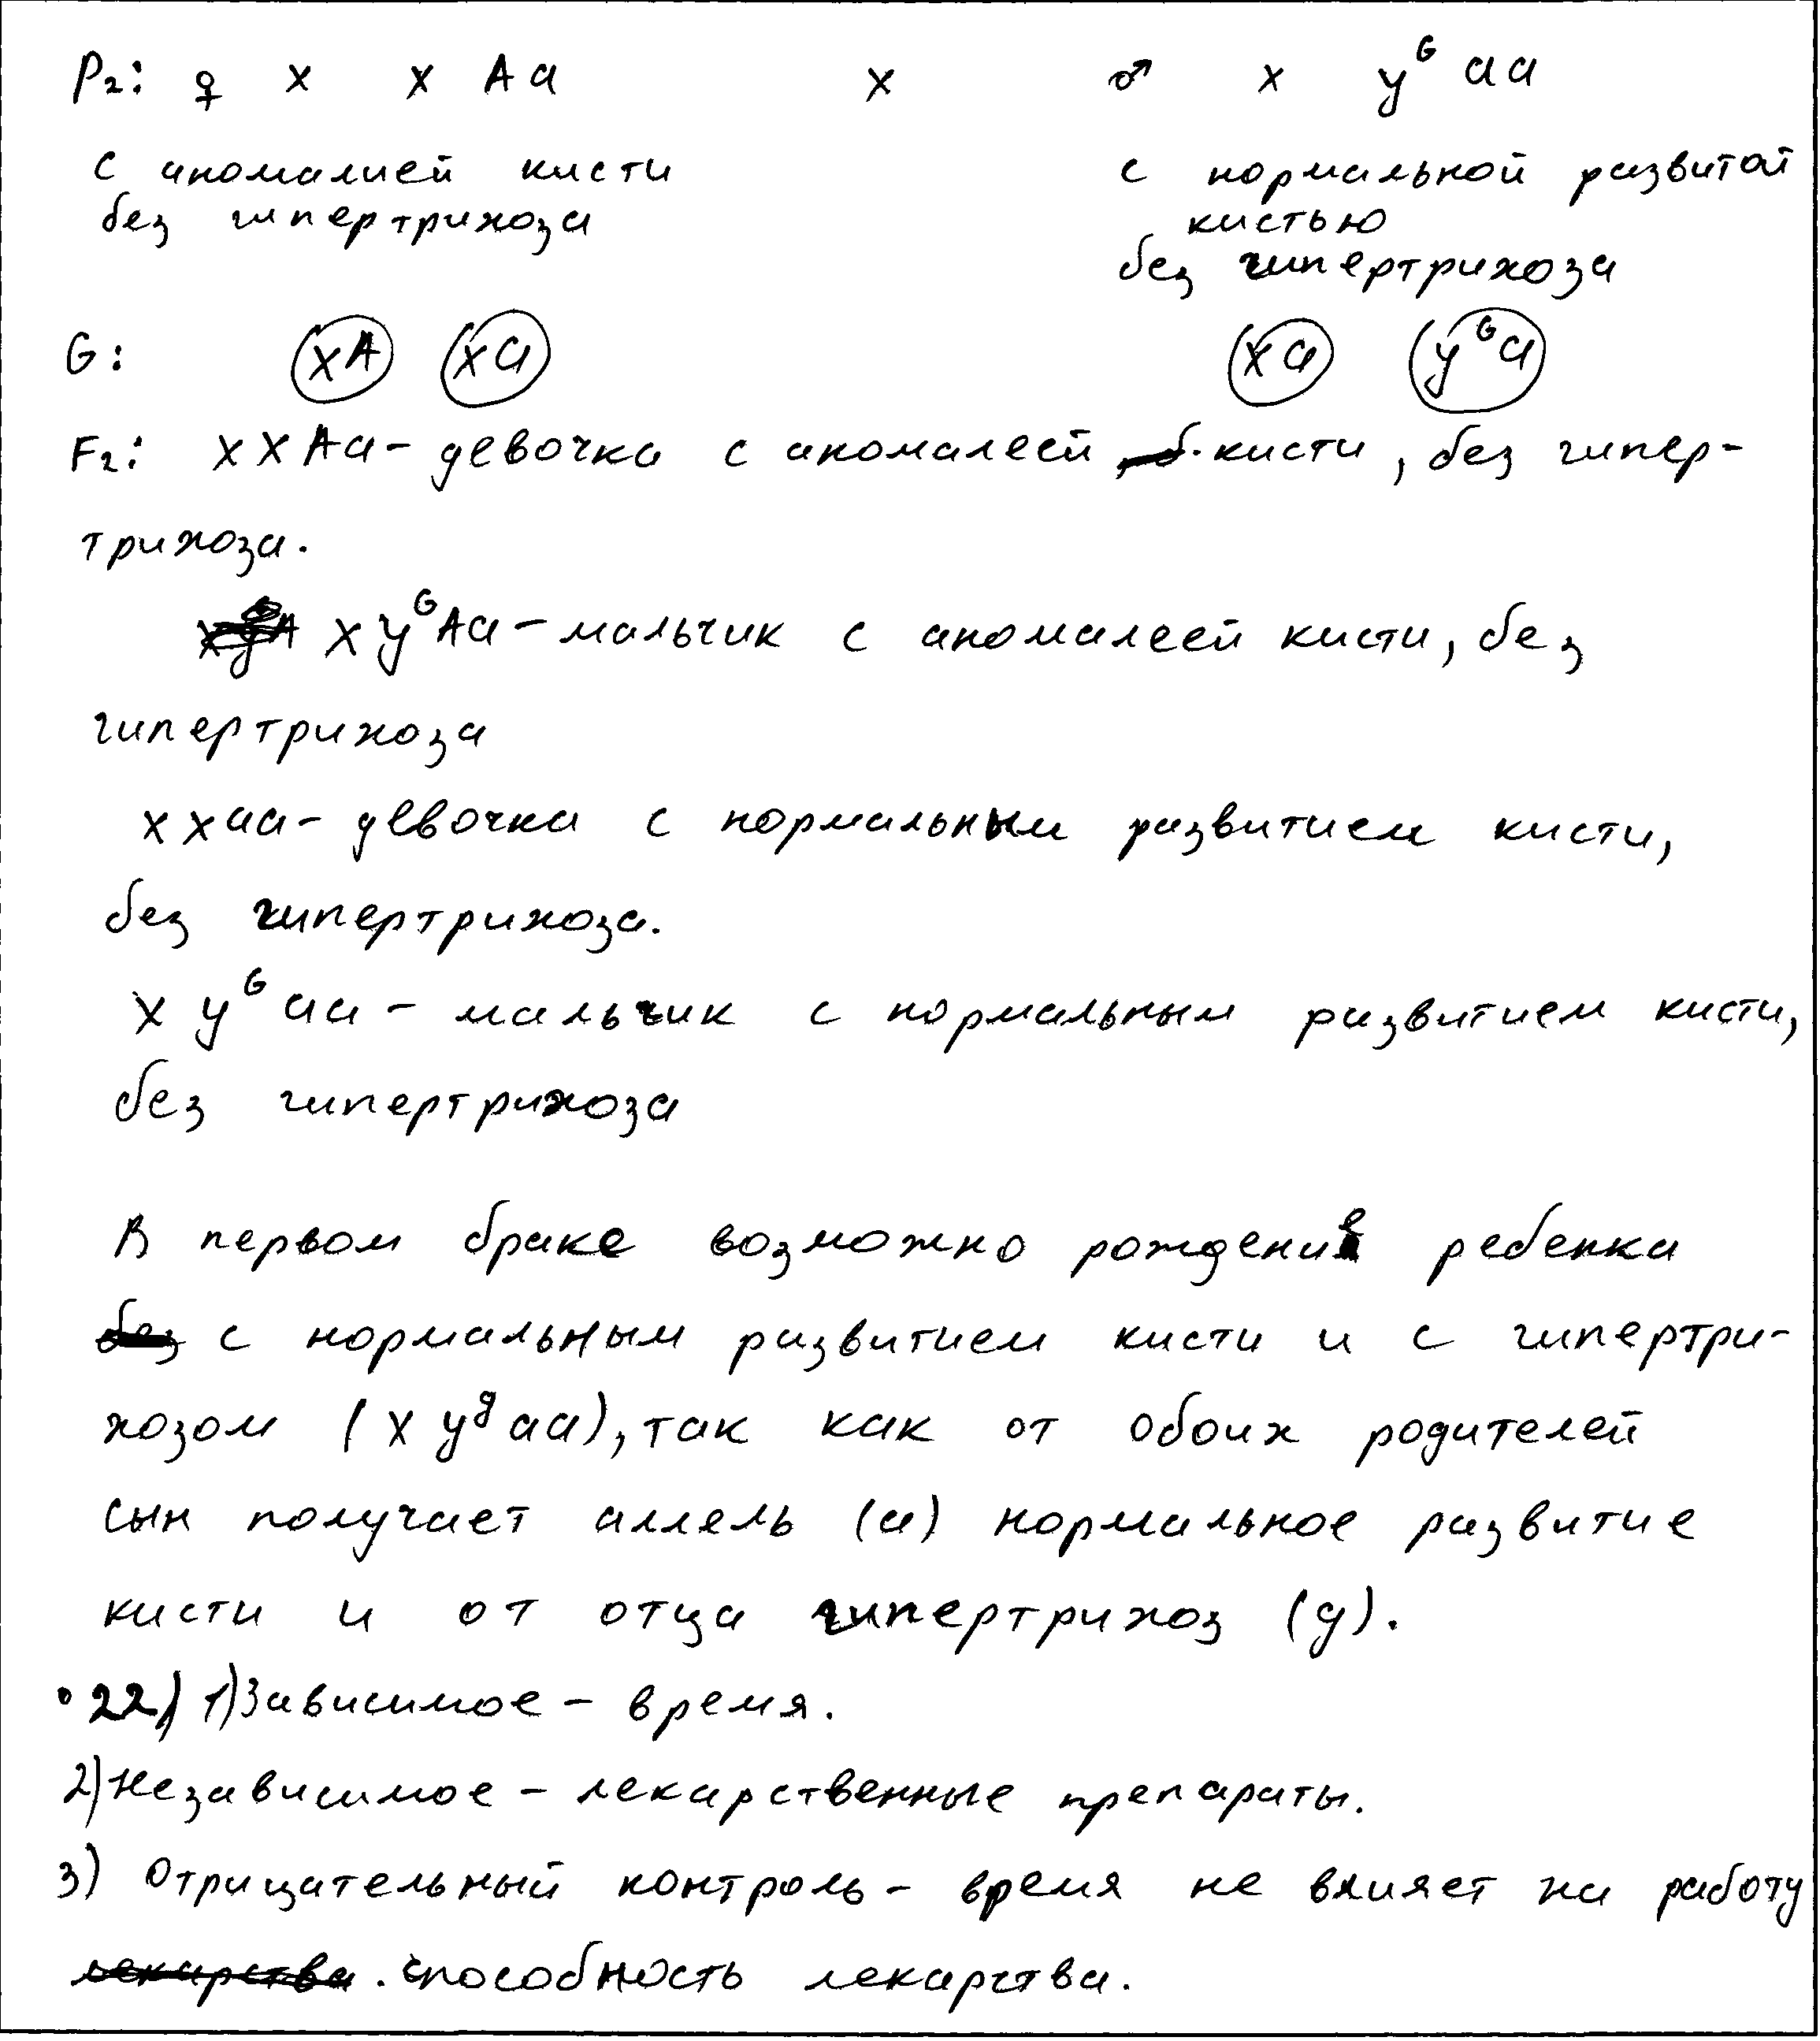 P₂: ♀ х х Аа х ♂ х у^G аа
с аномалией кисти с нормальной развитой
без гипертрихоза кистью
без гипертрихоза
G: хА ха ха у^G а
F₂: х х Аа - девочка с аномалеей кисти, без гипер-
трихоза.
х у^G Аа - мальчик с аномалеей кисти, без
гипертрихоза
х х аа - девочка с нормальным развитием кисти,
без гипертрихоза.
х у^G аа - мальчик с нормальным развитием кисти,
без гипертрихоза
В первом браке возможно рождение ребенка
без с нормальным развитием кисти и с гипертри-
хозом (х у^g аа), так как от обоих родителей
сын получает аллель (а) нормальное развитие
кисти и от отца гипертрихоз (g).
22) 1) Зависимое - время.
2) Независимое - лекарственные препараты.
3) Отрицательный контроль - время не влияет на работу
лекарства. способность лекарства.